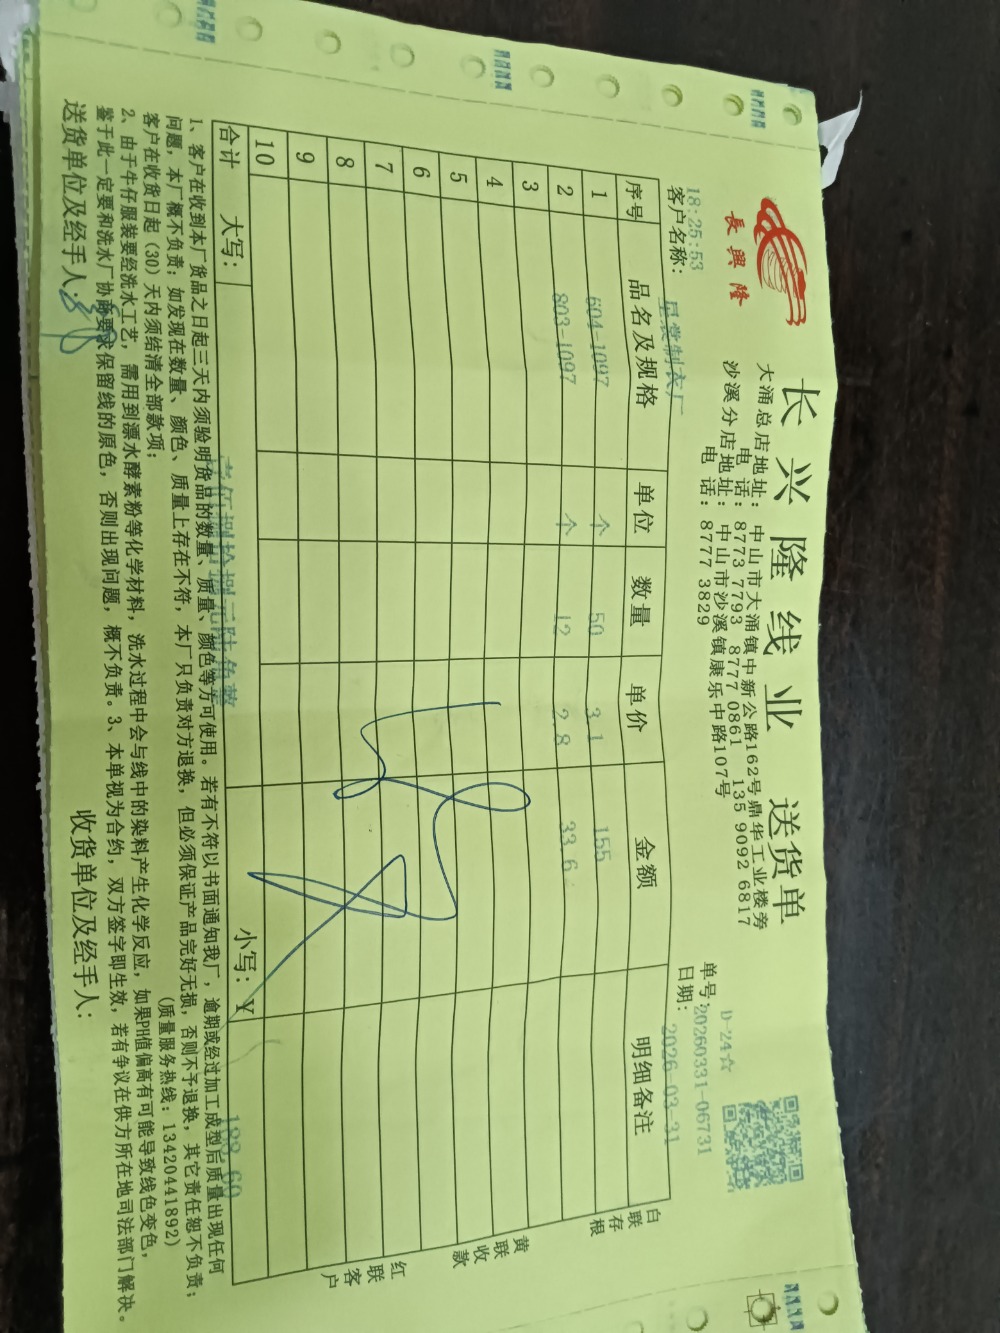 長興隆
长兴隆线业 送货单
大涌总店地址：中山市大涌镇中新公路162号鼎华工业楼旁
电 话：8773 7793 8777 0861 135 9092 6817
沙溪分店地址：中山市沙溪镇康乐中路107号
电 话：8777 3829
D-24☆
单号：20260331-06731
日期：2026-03-31
18:25:53
客户名称：星裳制衣厂
序号 品名及规格 单位 数量 单价 金额 明细备注
1 604-1097 个 50 3.1 155
2 803-1097 个 12 2.8 33.6
3
4
5
6
7
8
9
10
合计 大写：壹佰捌拾捌元陆角整 小写：¥ 188.60
白联存根
黄联收款
红联客户
1、客户在收到本厂货品之日起三天内须验明货品的数量、质量、颜色等方可使用。若有不符以书面通知我厂，逾期或经过加工成型后质量出现任何
问题，本厂概不负责；如发现在数量、颜色、质量上存在不符，本厂只负责对方退换，但必须保证产品完好无损，否则不予退换，其它责任恕不负责；
客户在收货日起（30）天内须结清全部款项；（质量服务热线：13420441892）
2、由于牛仔服装要经洗水工艺，需用到漂水酵素粉等化学材料，洗水过程中会与线中的染料产生化学反应，如果PH值偏高有可能导致线色变色，
鉴于此一定要和洗水厂协商要求保留线的原色，否则出现问题，概不负责。3、本单视为合约，双方签字即生效，若有争议在供方所在地司法部门解决。
送货单位及经手人： 收货单位及经手人：